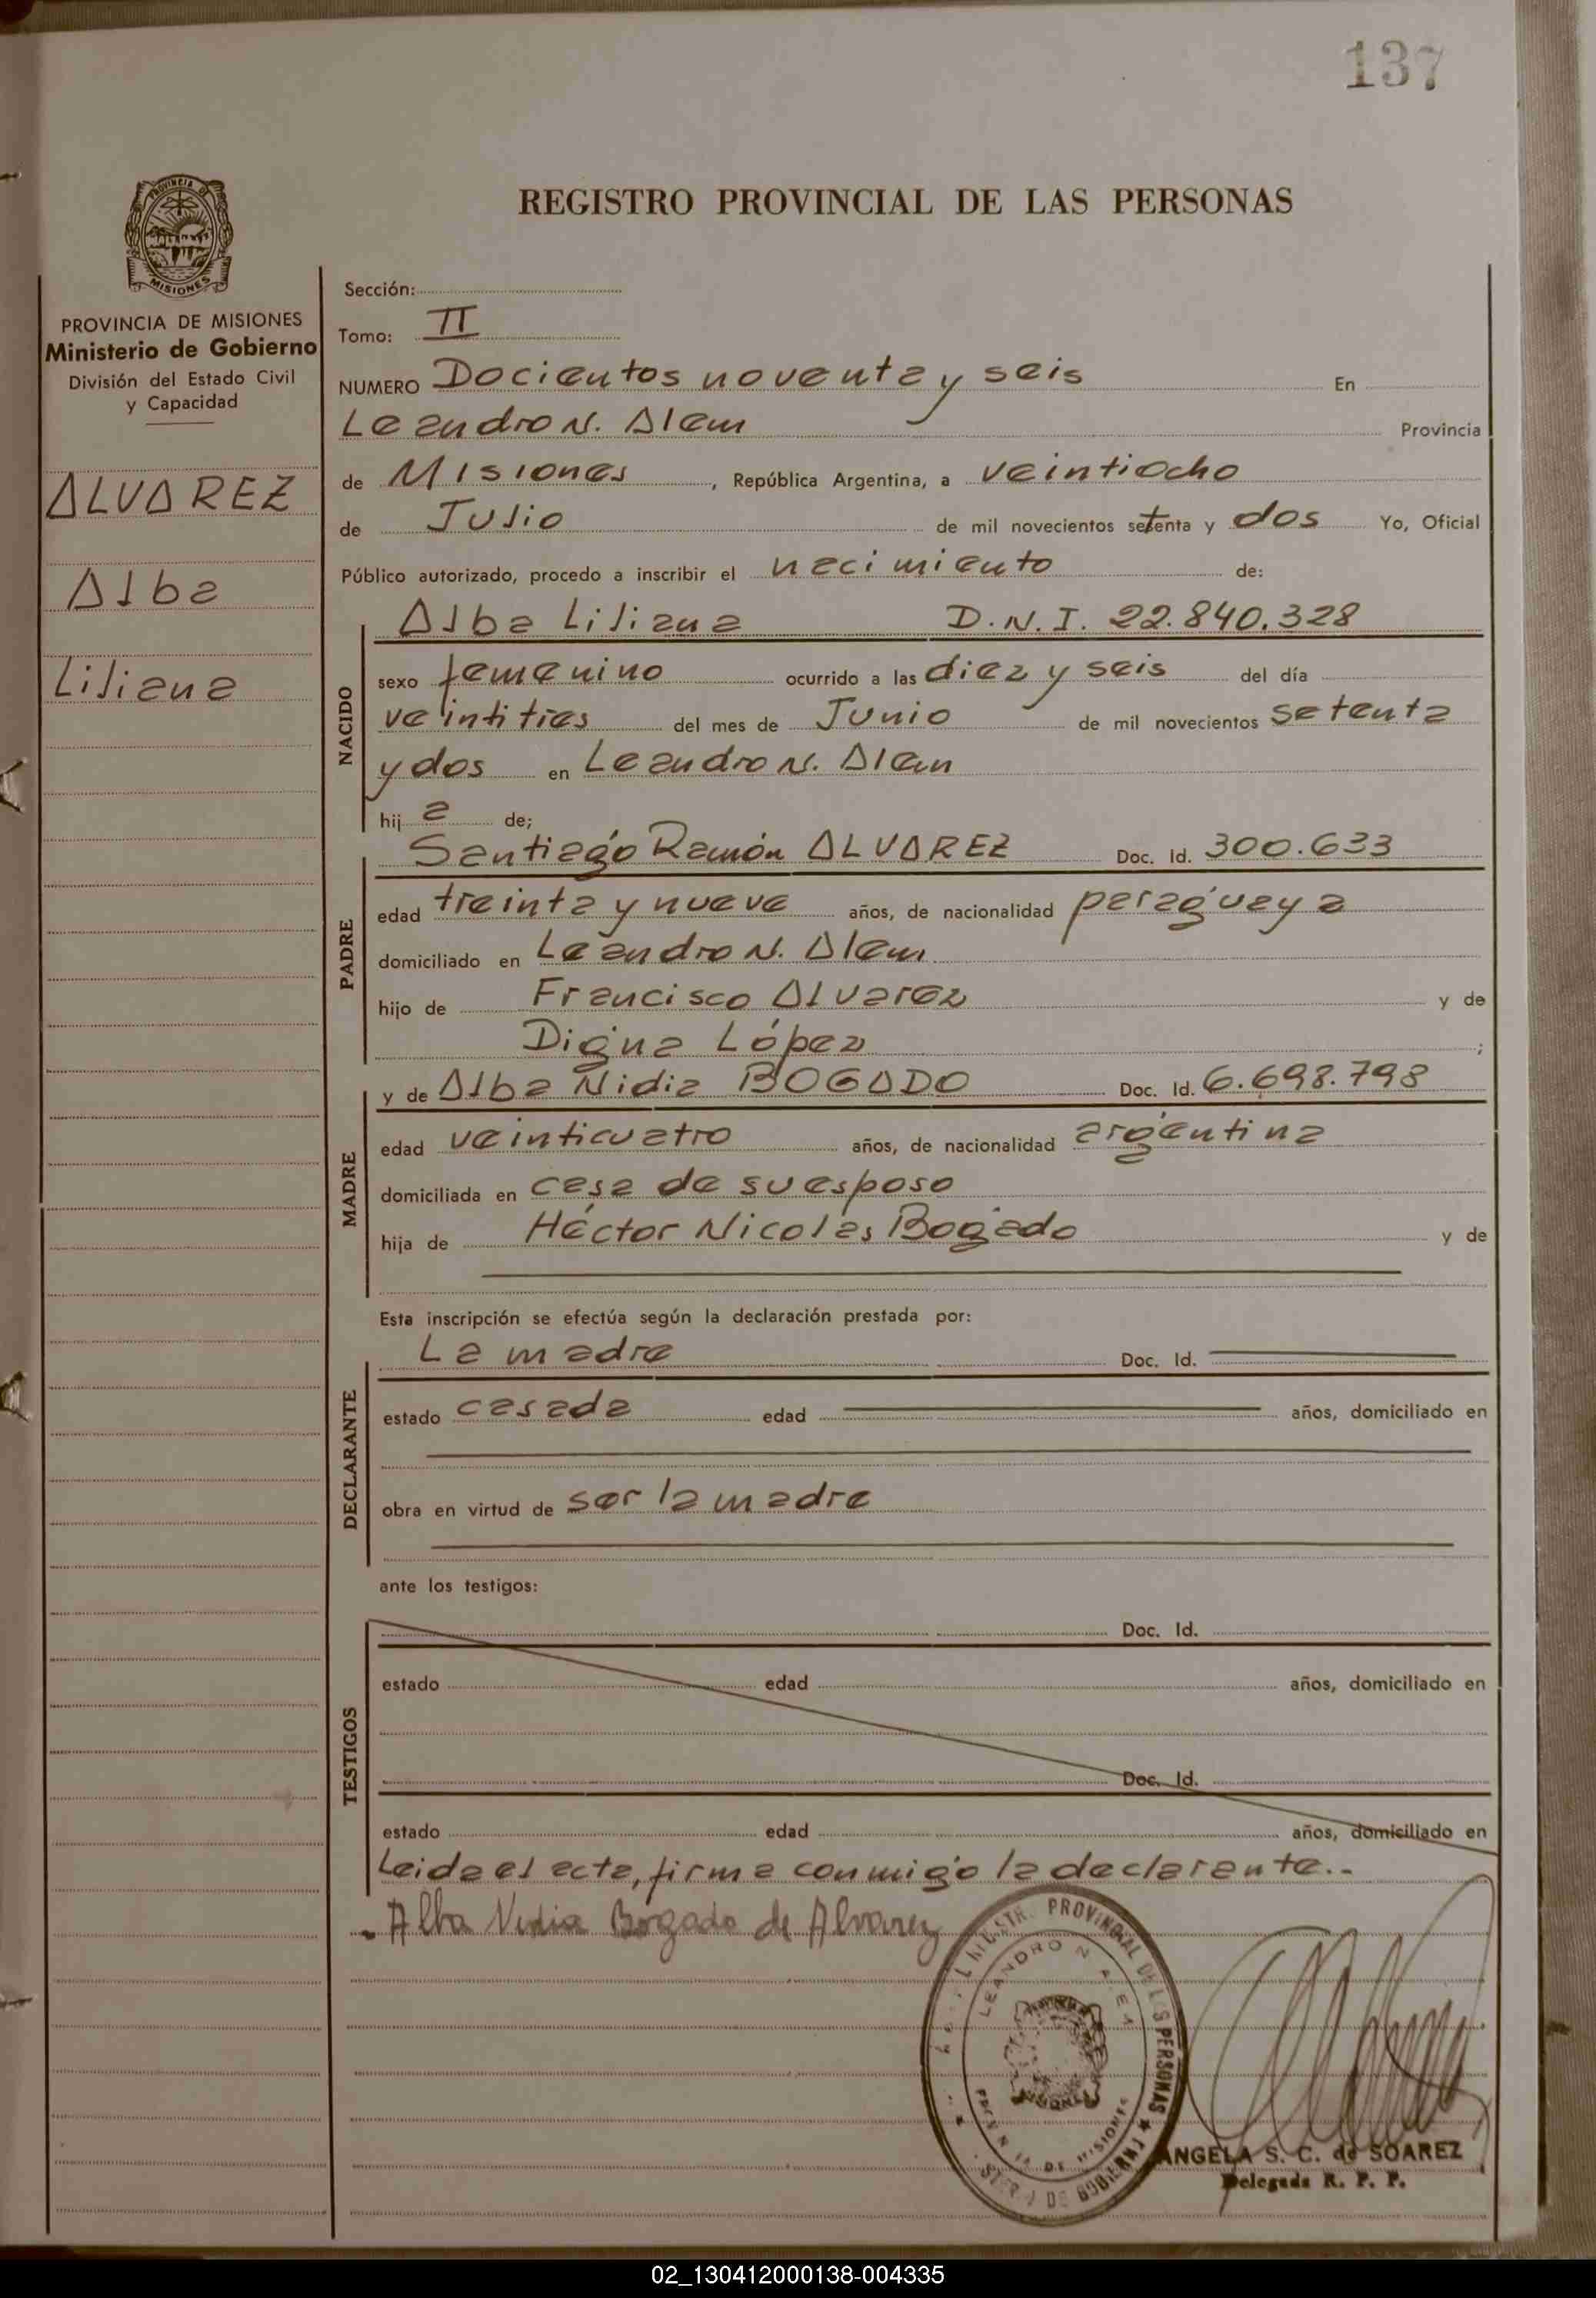 137
REGISTRO PROVINCIAL DE LAS PERSONAS
PROVINCIA DE
MISIONES
PROVINCIA DE MISIONES
Ministerio de Gobierno
División del Estado Civil
y Capacidad
ALVAREZ
Alba
Liliana
Sección:
Tomo: II
NUMERO Docientos noventa y seis En
Leandro N. Alem Provincia
de Misiones, República Argentina, a veintiocho
de Julio de mil novecientos setenta y dos Yo, Oficial
Público autorizado, procedo a inscribir el nacimiento de:
NACIDO
Alba Liliana D.N.I. 22.840.328
sexo femenino ocurrido a las diez y seis del día
veintitres del mes de Junio de mil novecientos setenta
y dos en Leandro N. Alem
hij a de;
PADRE
Santiago Ramón ALVAREZ Doc. Id. 300.633
edad treinta y nueve años, de nacionalidad paraguaya
domiciliado en Leandro N. Alem
hijo de Francisco Alvarez y de
Digna López ;
MADRE
y de Alba Nidia BOGADO Doc. Id. 6.698.798
edad veinticuatro años, de nacionalidad argentina
domiciliada en casa de su esposo
hija de Héctor Nicolás Bogado y de
Esta inscripción se efectúa según la declaración prestada por:
DECLARANTE
La madre Doc. Id.
estado casada edad años, domiciliado en
obra en virtud de ser la madre
ante los testigos:
TESTIGOS
Doc. Id.
estado edad años, domiciliado en
Doc. Id.
estado edad años, domiciliado en
Leida el acta, firma conmigo la declarante..
Alba Nidia Bogado de Alvarez
PROVINCIAL DE LAS PERSONAS
LEANDRO N. ALEM
DE MISIONES
DE GOBIERNO
ANGELA S. C. de SOAREZ
Delegada R. P. P.
02_130412000138-004335